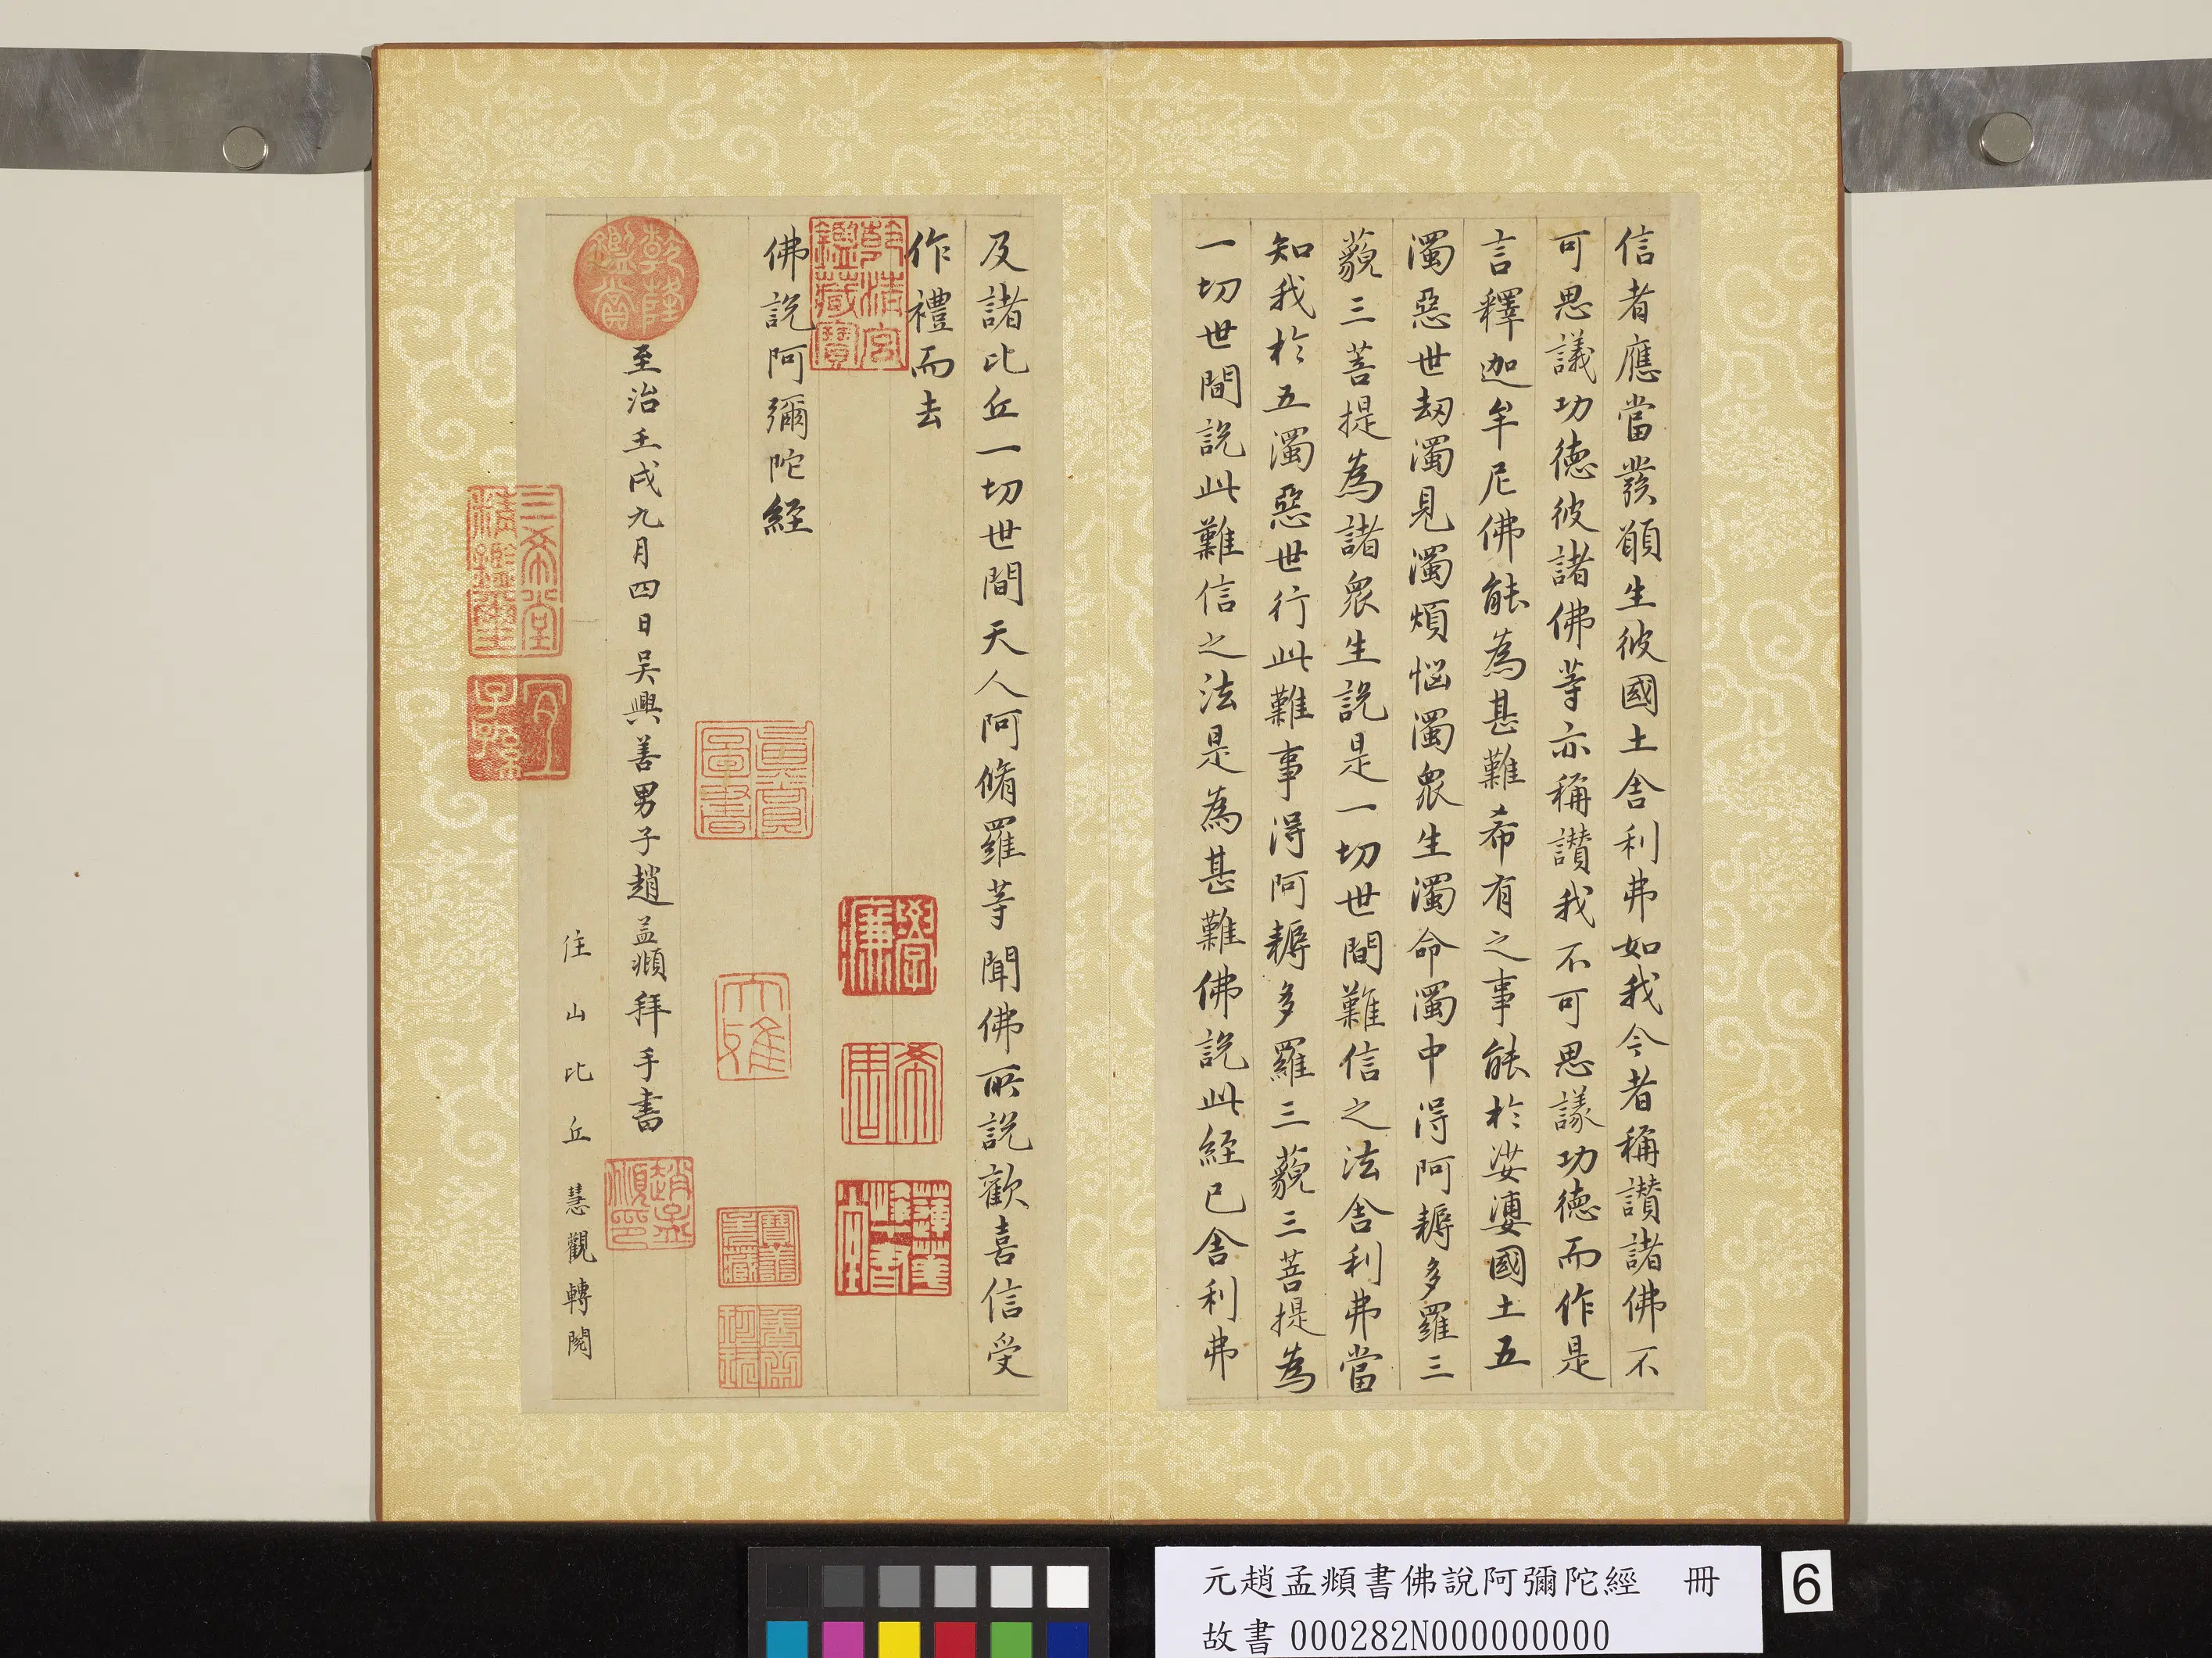 信者應當發願生彼國土舍利弗如我今者稱讚諸佛不
可思議功德彼諸佛等亦稱讚我不可思議功德而作是
言釋迦牟尼佛能為甚難希有之事能於娑婆國土五
濁惡世劫濁見濁煩惱濁眾生濁命濁中得阿耨多羅三
藐三菩提為諸眾生說是一切世間難信之法舍利弗當
知我於五濁惡世行此難事得阿耨多羅三藐三菩提為
一切世間說此難信之法是為甚難佛說此經已舍利弗
及諸比丘一切世間天人阿脩羅等聞佛所說歡喜信受
作禮而去
乾清宮鑑藏寶
佛說阿彌陀經
乾隆鑑賞
至治壬戌九月四日吳興善男子趙孟頫拜手書
趙孟頫印
住山比丘慧觀轉閱
三希堂精鑑璽
宜子孫
大雅
元趙孟頫書佛說阿彌陀經 冊
故書 000282N000000000
6